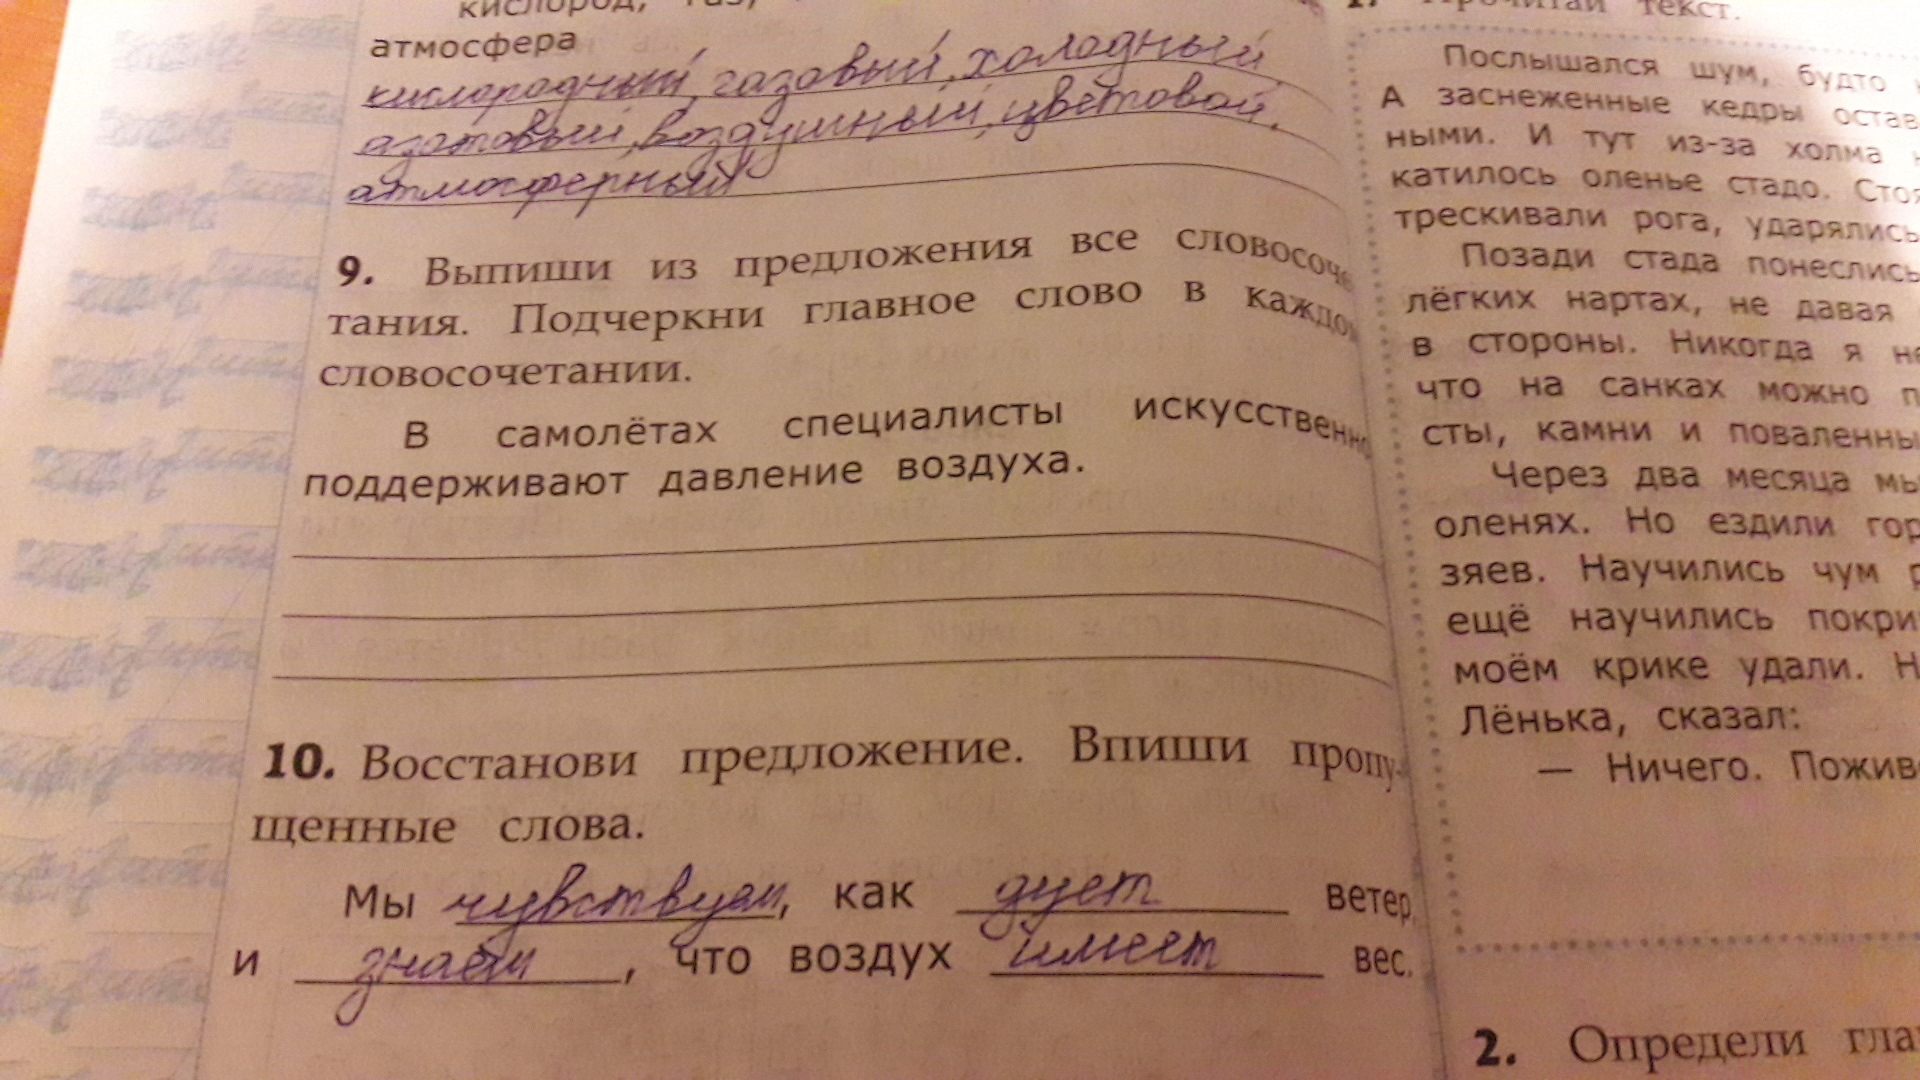 кислород, газ,
атмосфера
кислородный, газовый, холодный
азотовый, воздушный, цветовой,
атмосферный
9. Выпиши из предложения все словосоче
тания. Подчеркни главное слово в каждом
словосочетании.
В самолётах специалисты искусственно
поддерживают давление воздуха.
10. Восстанови предложение. Впиши пропу-
щенные слова.
Мы чувствуем, как дует ветер,
и знаем, что воздух имеет вес.
1. Прочитай текст.
Послышался шум, будто
А заснеженные кедры остав
ными. И тут из-за холма
катилось оленье стадо. Стоя
трескивали рога, ударялись
Позади стада понеслись
лёгких нартах, не давая
в стороны. Никогда я не
что на санках можно п
сты, камни и поваленны
Через два месяца мы
оленях. Но ездили гор
зяев. Научились чум р
ещё научились покри
моём крике удали. Н
Лёнька, сказал:
— Ничего. Пожив
2. Определи гла